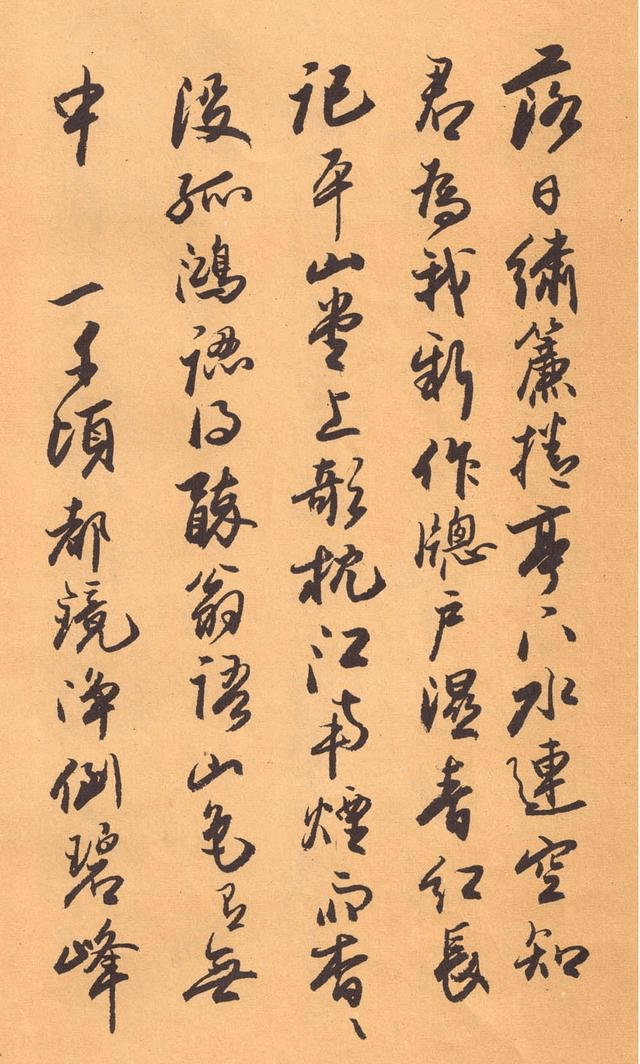 落日繡簾捲亭下水連空知
君為我新作牕戶濕青紅長
記平山堂上欹枕江南煙雨杳〻
没孤鴻認得醉翁語山色有無
中 一千頃都鏡淨倒碧峰